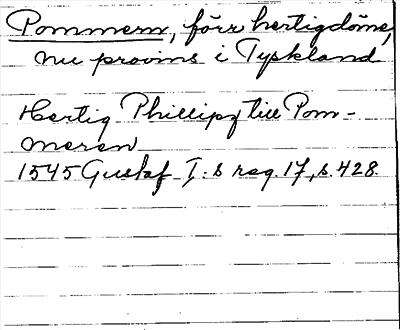 Pommern, förr hertigdöme,
nu provins i Tyskland
Hertig Phillipz till Pom-
meren
1545 Gustaf I:s reg. 17, s. 428.